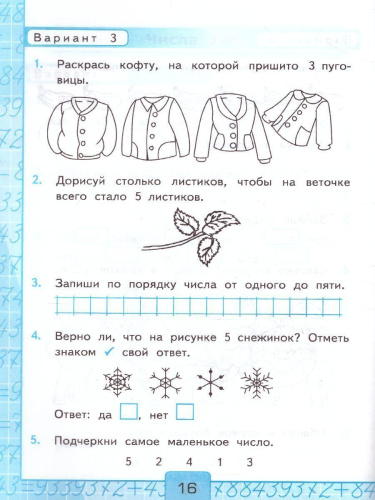 Вариант 3
1. Раскрась кофту, на которой пришито 3 пуго-
вицы.
2. Дорисуй столько листиков, чтобы на веточке
всего стало 5 листиков.
3. Запиши по порядку числа от одного до пяти.
4. Верно ли, что на рисунке 5 снежинок? Отметь
знаком ✓ свой ответ.
Ответ: да , нет .
5. Подчеркни самое маленькое число.
5 2 4 1 3
16